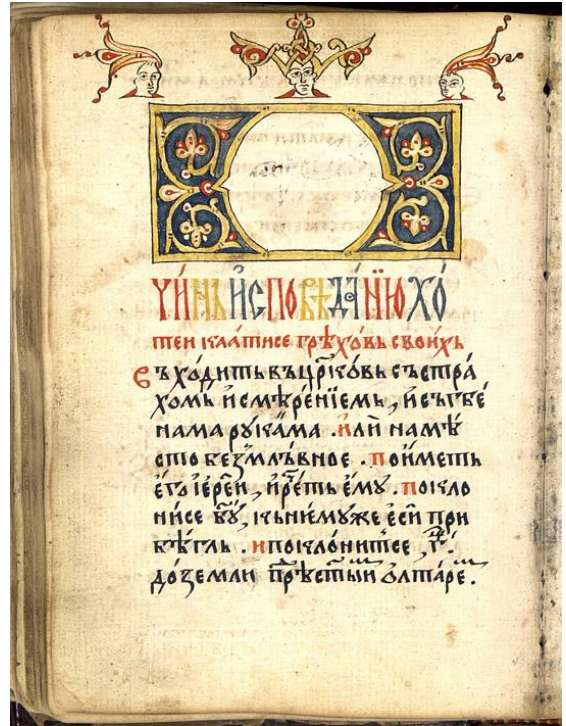 чи́нь и҆сповѣда́нїю хо́
теи каꙗтисе грѣ́ховь свои́хь
Въхо́дить въ цр҃ковь съ стра́
хомь и҆ смѣре́нїемь, и҆ съгбе́
нама рꙋкама . и҆лѝ на мѣ́
сто безмль́вное . пои҆меть
є҆го̀ і҆ере́и, и҆ ре҃ть є҆мꙋ̀ . покло
нисе бꙋ҃, кь нїемꙋже є҆сѝ при
бѣ́гль . и поклони́тсе , г҃.
до́ земли прѣ҃стыи ѻ҆лта́ре .